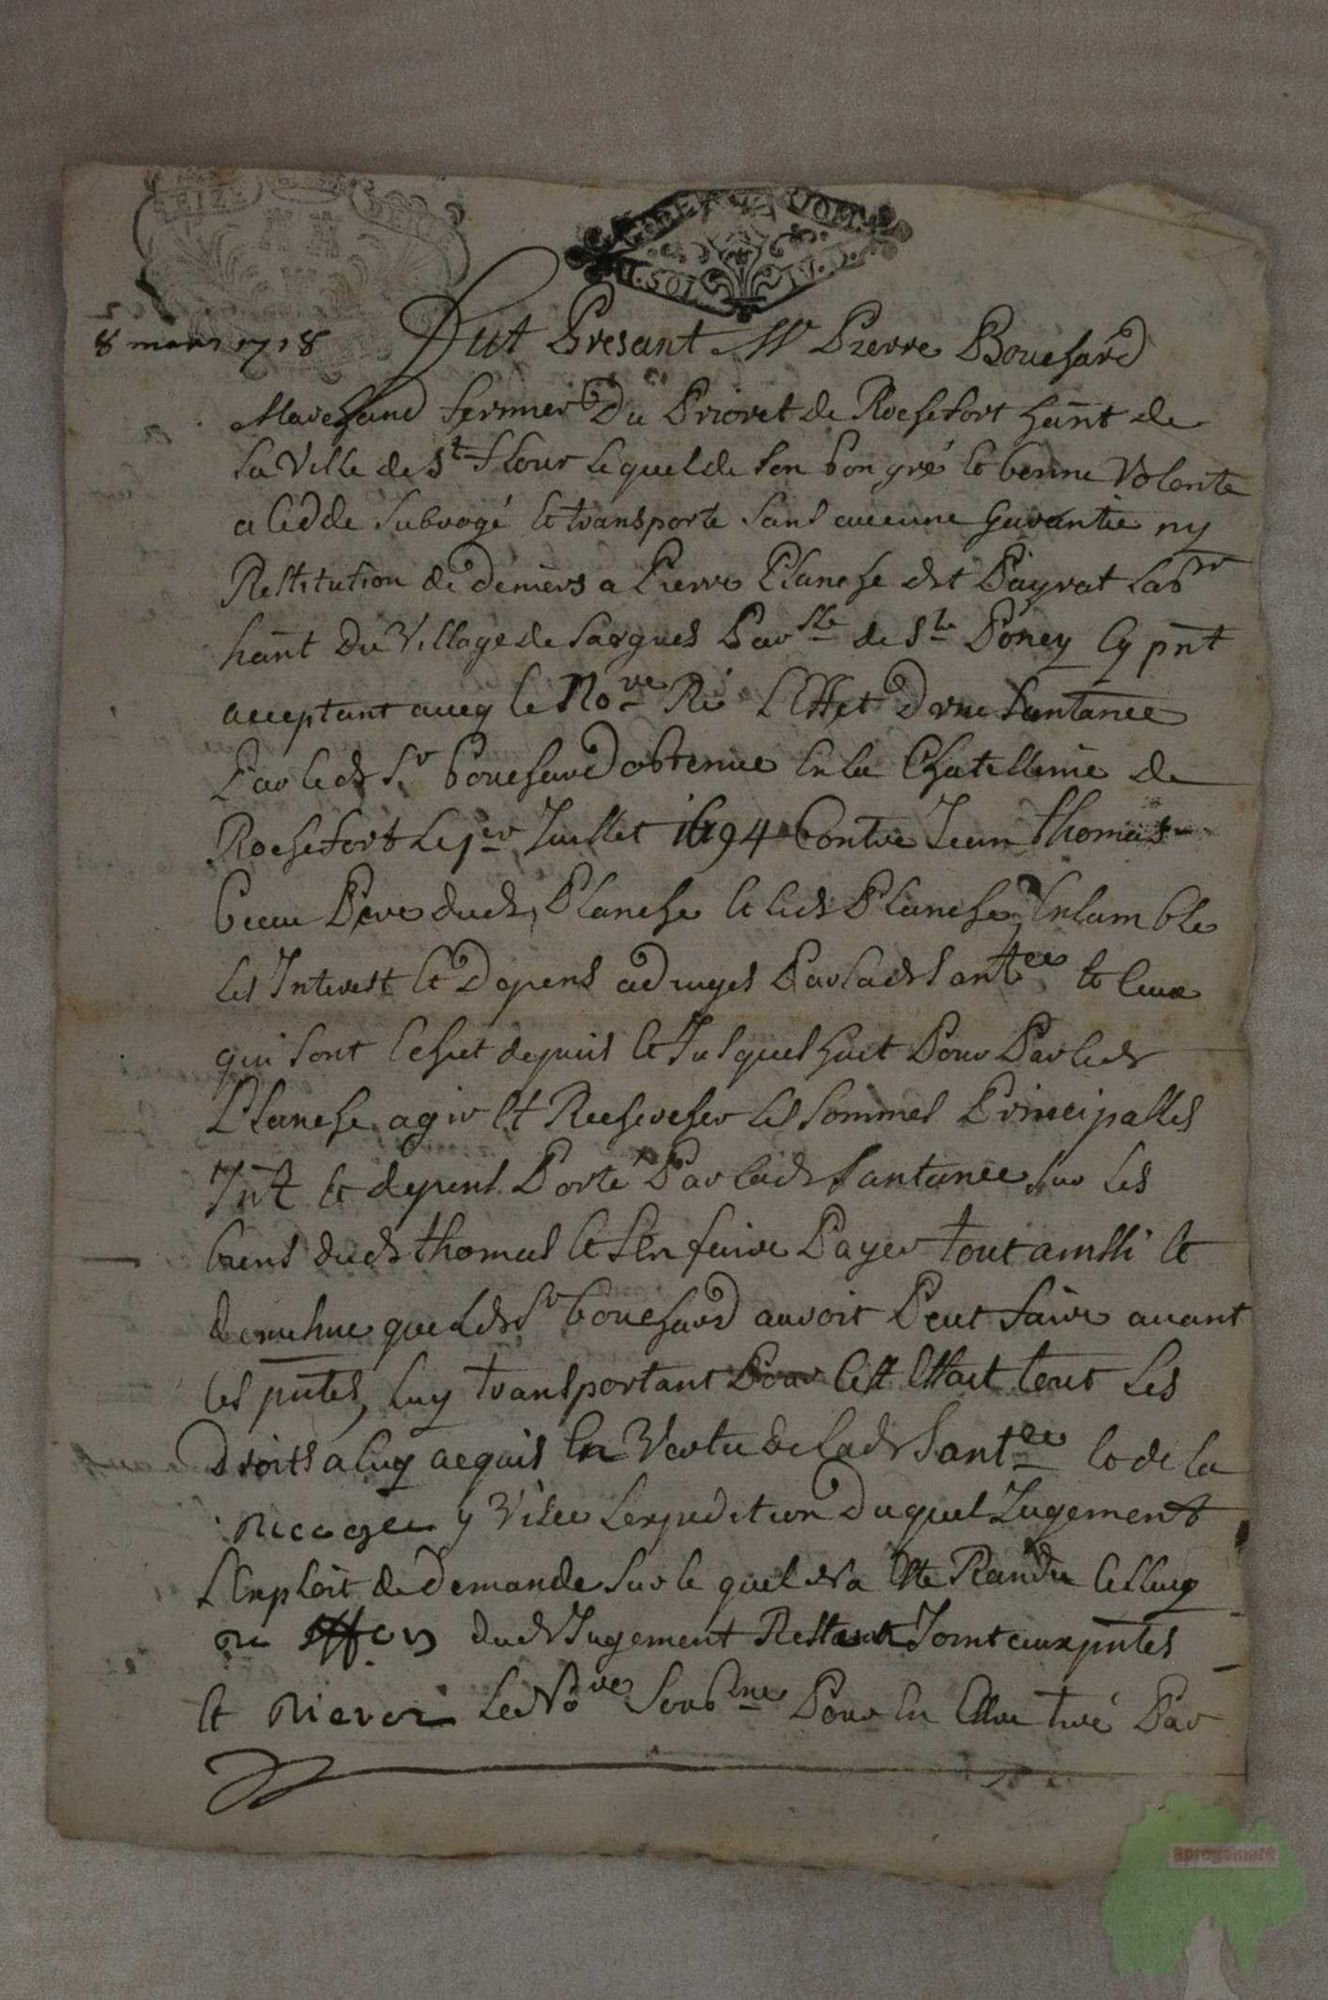 8 mars 1718
Fut Presant Mr Pierre Bouchard
Marchand fermier Du Prioret de Rochefort hant de
la Ville de St flour lequel de son bon gré et bonne Volonte
a cedde subrogé et transporte sans aucune Garantie ny
Restitution de deniers a Pierre Planche dit Payrat labr
hant Du Village de Sargues Parsse de Ste Poncy Cy pnt
acceptant aucq le Nore Ré L'Effet D'une santance
Par ledt Sr bouchard obtenue En la Chatellenie de
Rochefort le jer Juillet 1694 Contre Jean thomas
beau Pere dudt Planche et ledt Planche Ensamble
les Interest et Depens adjuges Par ladt santee et ceux
qui sont Eschet depuis et Jusques huit Pour Par ledt
Planche agir et Rechercher les sommes Principalles
Int et depens Porté Par ladt santance sur les
biens dudt thomas et s'en faire Payer tout ainssi et
de mesme que ledt Sr bouchard auroit Peut faire auant
les pntes, luy transportant Pour cest Effait tout les
Droits a luy acquis En Vertu de ladt santee et de la
y Visee L'expedition Duquel Jugement
L'Exploit de demande sur le quel il a Este Randu
dudt Jugement Restant Joint aux pntes
et Riere ledt Nore soubne Pour En Estre tiré Par